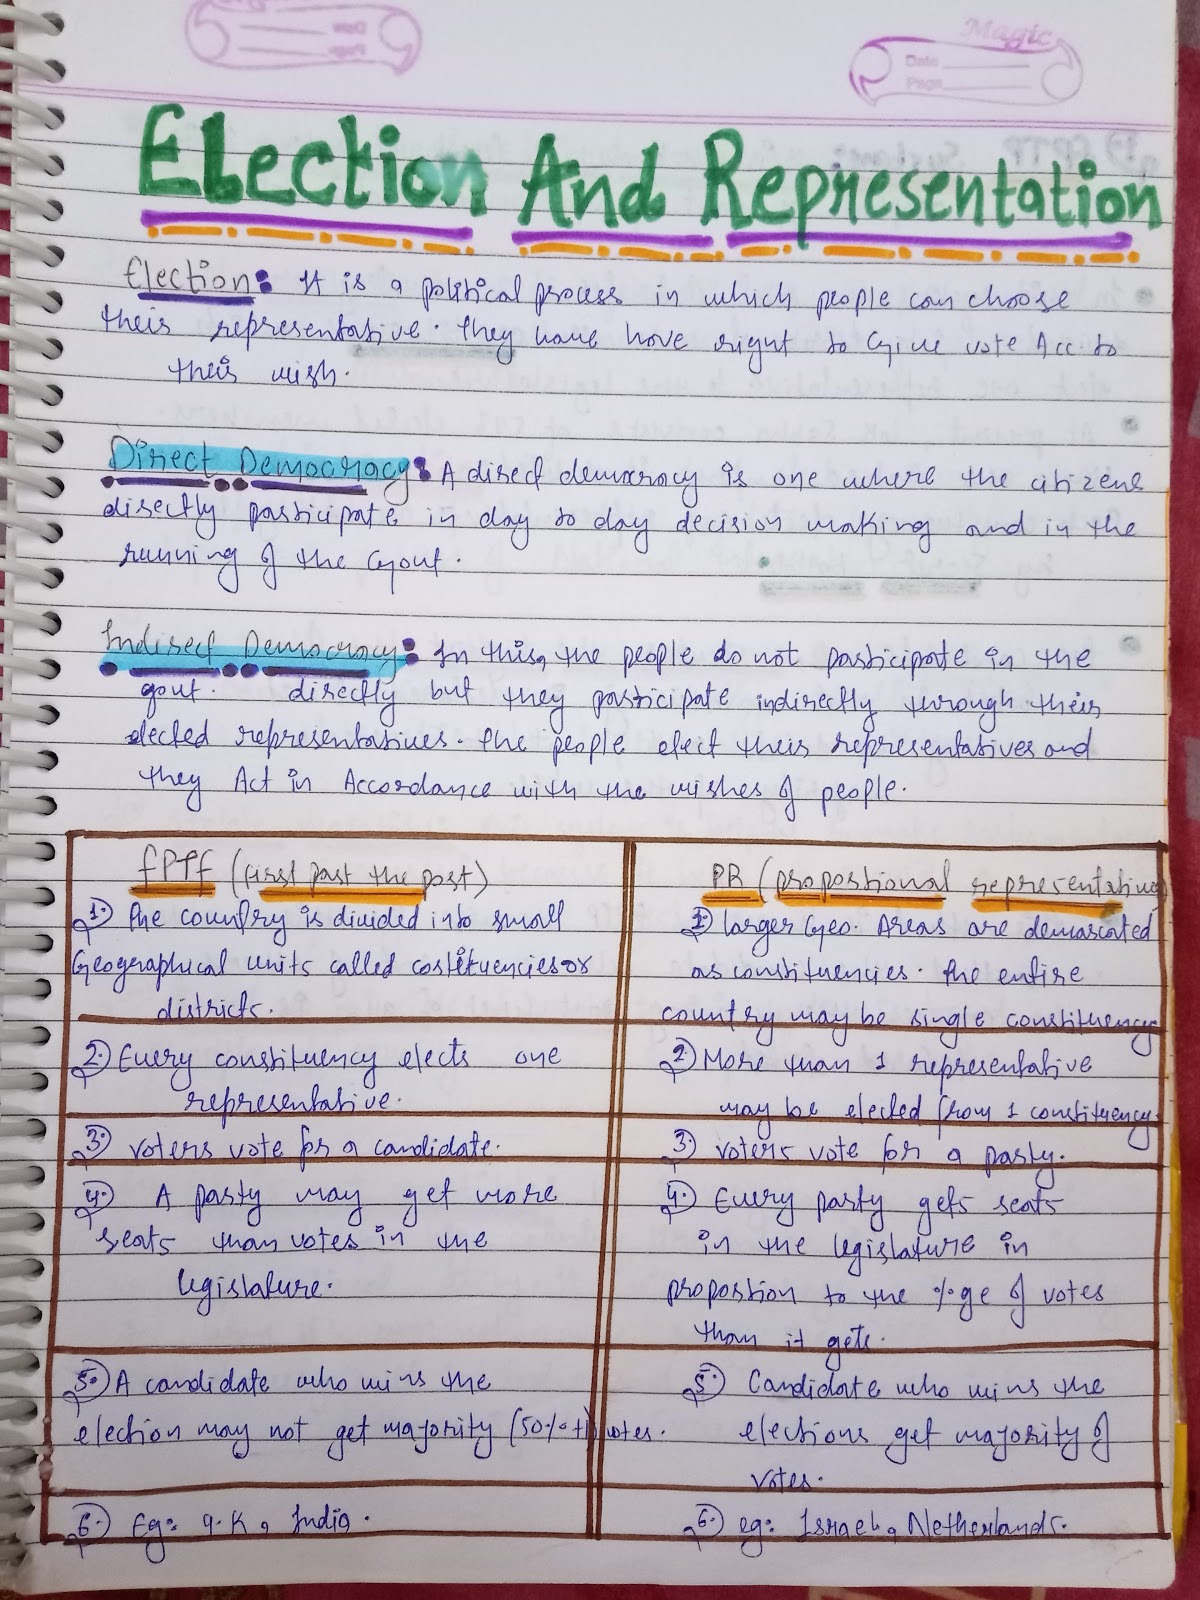 Magic
Date
Page
Election And Representation
Election: It is a political process in which people can choose
their representative. they have have right to Give vote Acc to
their wish.
Direct Democracy: A direct democracy is one where the citizens
directly participate in day to day decision making and in the
running of the Govt.
Indirect Democracy: In this, the people do not participate in the
govt. directly but they participate indirectly through their
elected representatives. The people elect their representatives and
they Act in Accordance with the wishes of people.
FPTP (First past the post)
1. The country is divided into small
Geographical units called costituencies or
districts.
2. Every constituency elects one
representative.
3. voters vote for a candidate.
4. A party may get more
seats than votes in the
legislature.
5. A candidate who wins the
election may not get majority (50%+1) votes.
6. Eg: U.K, India.
PR (proportional representative)
1. larger Geo. Areas are demarcated
as constituencies. The entire
country may be single constituency
2. More than 1 representative
may be elected from 1 constituency.
3. voters vote for a party.
4. Every party gets seats
in the legislature in
proportion to the %ge of votes
than it gets.
5. Candidate who wins the
elections get majority of
votes.
6. eg: Israel, Netherlands.